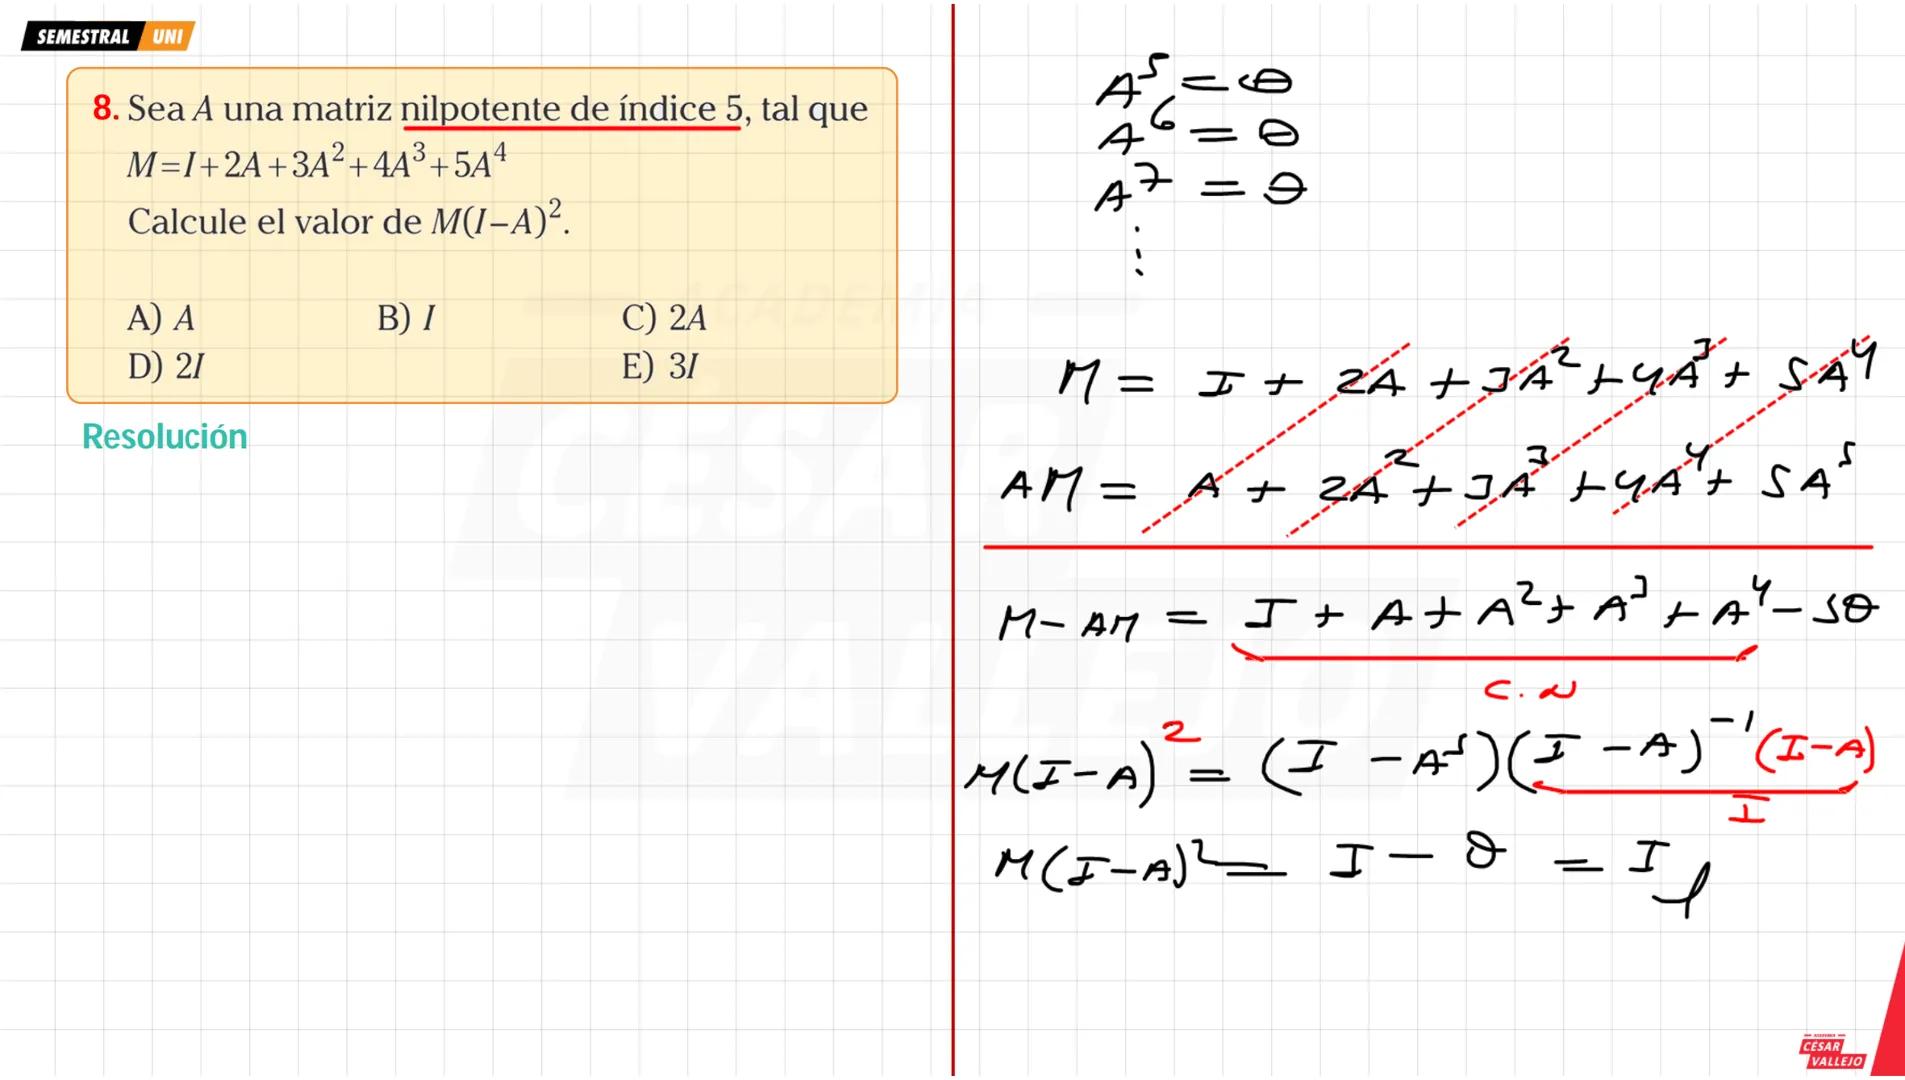 SEMESTRAL UNI
8. Sea A una matriz nilpotente de índice 5, tal que
M=I+2A+3A²+4A³+5A⁴
Calcule el valor de M(I−A)².
A) A B) I C) 2A
D) 2I E) 3I
Resolución
A⁵ = θ
A⁶ = θ
A⁷ = θ
⋮
M = I + 2A + 3A² + 4A³ + 5A⁴
AM = A + 2A² + 3A³ + 4A⁴ + 5A⁵
M − AM = I + A + A² + A³ + A⁴ − 5θ
C.N
M(I−A)² = (I − A⁵)(I − A)⁻¹(I−A)
I
M(I−A)² = I − θ = I
ACADEMIA
CÉSAR
VALLEJO
ACADEMIA
CÉSAR
VALLEJO